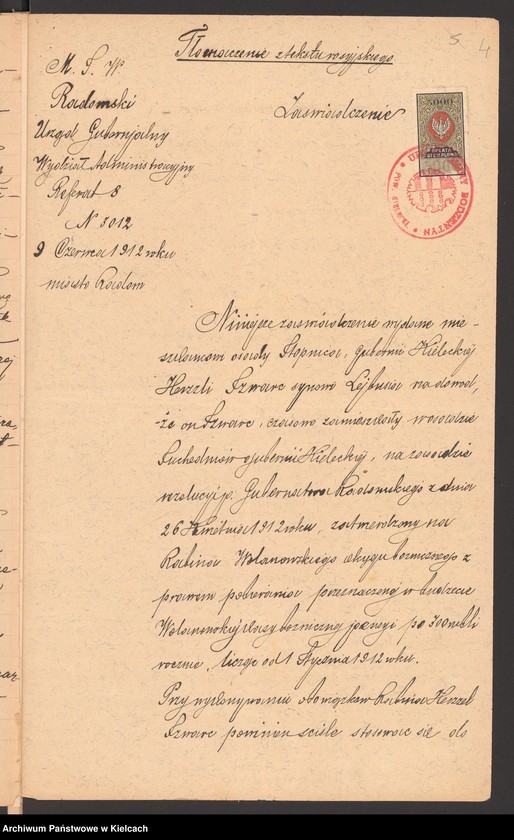 Tłomaczenie z tekstu rosyjskiego
5. 4
M. S. W.
Radomski
Urząd Gubernjalny
Wydział Administracyjny
Referat 8
N 3012
9 Czerwca 1912 roku
miasto Radom
Zaświadczenie
5000
OPŁATA STEMPLOWA
BODZENTYN
Niniejsze zaświadczenie wydane mie-
szkańcowi osady Stopnica, gubernii Kieleckiej
Herszli Szwarc synowi Lejbusia na dowód,
że on Szwarc, czasowo zamieszkały w osadzie
Suchedniów gubernii Kieleckiej, na zasadzie
rezolucji p. Gubernatora Radomskiego z dnia
26 Kwietnia 1912 roku, zatwierdzony na
Rabina Wolanowskiego okręgu bożniczego z
prawem pobierania przeznaczonej w budżecie
Wolanowskiej kasy bożniczej pensji po 300 rubli
rocznie, licząc od 1 Stycznia 1912 roku.
Przy wykonywaniu obowiązków Rabina Herszel
Szwarc powinien ściśle stosować się do
Archiwum Państwowe w Kielcach